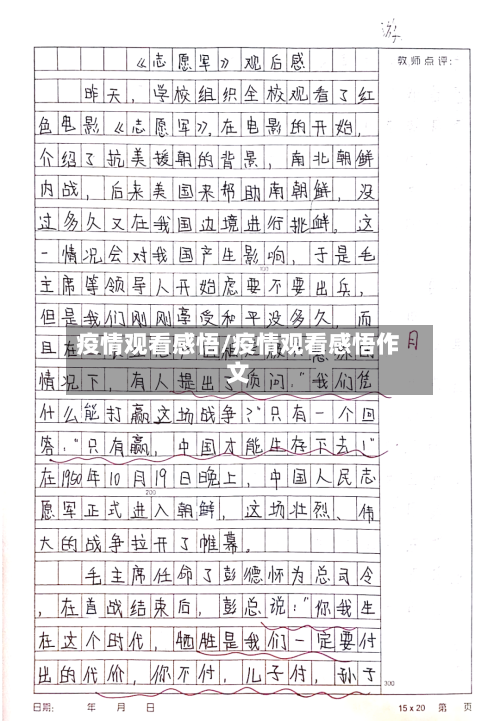 游
教师点评:
《志愿军》观后感
昨天，学校组织全校观看了红
色电影《志愿军》，在电影的开始，
介绍了抗美援朝的背景，南北朝鲜
内战，后来美国来帮助南朝鲜，没
过多久又在我国边境进行挑衅。这
一情况会对我国产生影响，于是毛
100
主席等领导人开始虑要不要出兵，
但是我们刚刚享受和平没多久，而
且在
疫情观看感悟/疫情观看感悟作
文
月
情况下，有人提出了质问："我们凭
什么能打赢这场战争？"只有一个回
答："只有赢，中国才能生存下去！"
在1950年10月19日晚上，中国人民志
200
愿军正式进入朝鲜，这场壮烈、伟
大的战争拉开了帷幕。
毛主席任命了彭德怀为总司令
，在首战结束后，彭总说："你我生
在这个时代，牺牲是我们一定要付
出的代价，你不付，儿子付，孙子
300
日期: 年 月 日 15×20 第 页